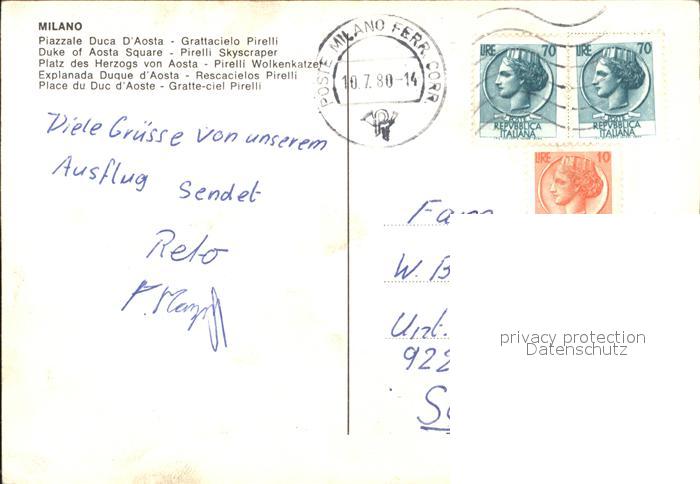 MILANO
Piazzale Duca D'Aosta - Grattacielo Pirelli
Duke of Aosta Square - Pirelli Skyscraper
Platz des Herzogs von Aosta - Pirelli Wolkenkatzer
Explanada Duque d'Aosta - Rescacielos Pirelli
Place du Duc d'Aoste - Gratte-ciel Pirelli
POSTE MILANO FERR. CORR
10.7.80-14
LIRE 70
REPVBBLICA
ITALIANA
LIRE 70
REPVBBLICA
ITALIANA
LIRE 10
Viele Grüsse von unserem
Ausflug Sendet
Reto
Fam
W. B
Unt.
922
privacy protection
Datenschutz